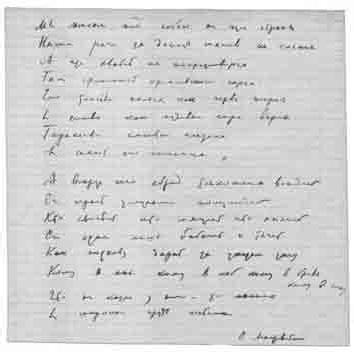 Мы живем под собою не чуя страны
Наши речи за десять шагов не слышны
А где хватит на полразговорца
Там припомнят кремлевского горца
Его толстые пальцы как черви жирны
И слова как пудовые гири верны
Тараканьи смеются глазища
И сияют его голенища.
А вокруг него сброд тонкошеих вождей
Он играет услугами полулюдей
Кто свистит кто мяучит кто хнычет
Он один лишь бабачит и тычет
Как подкову дарит за указом указ
Кому в пах кому в лоб кому в бровь
кому в глаз
Что ни казнь у него - то малина
И широкая грудь осетина
О. Мандельштам